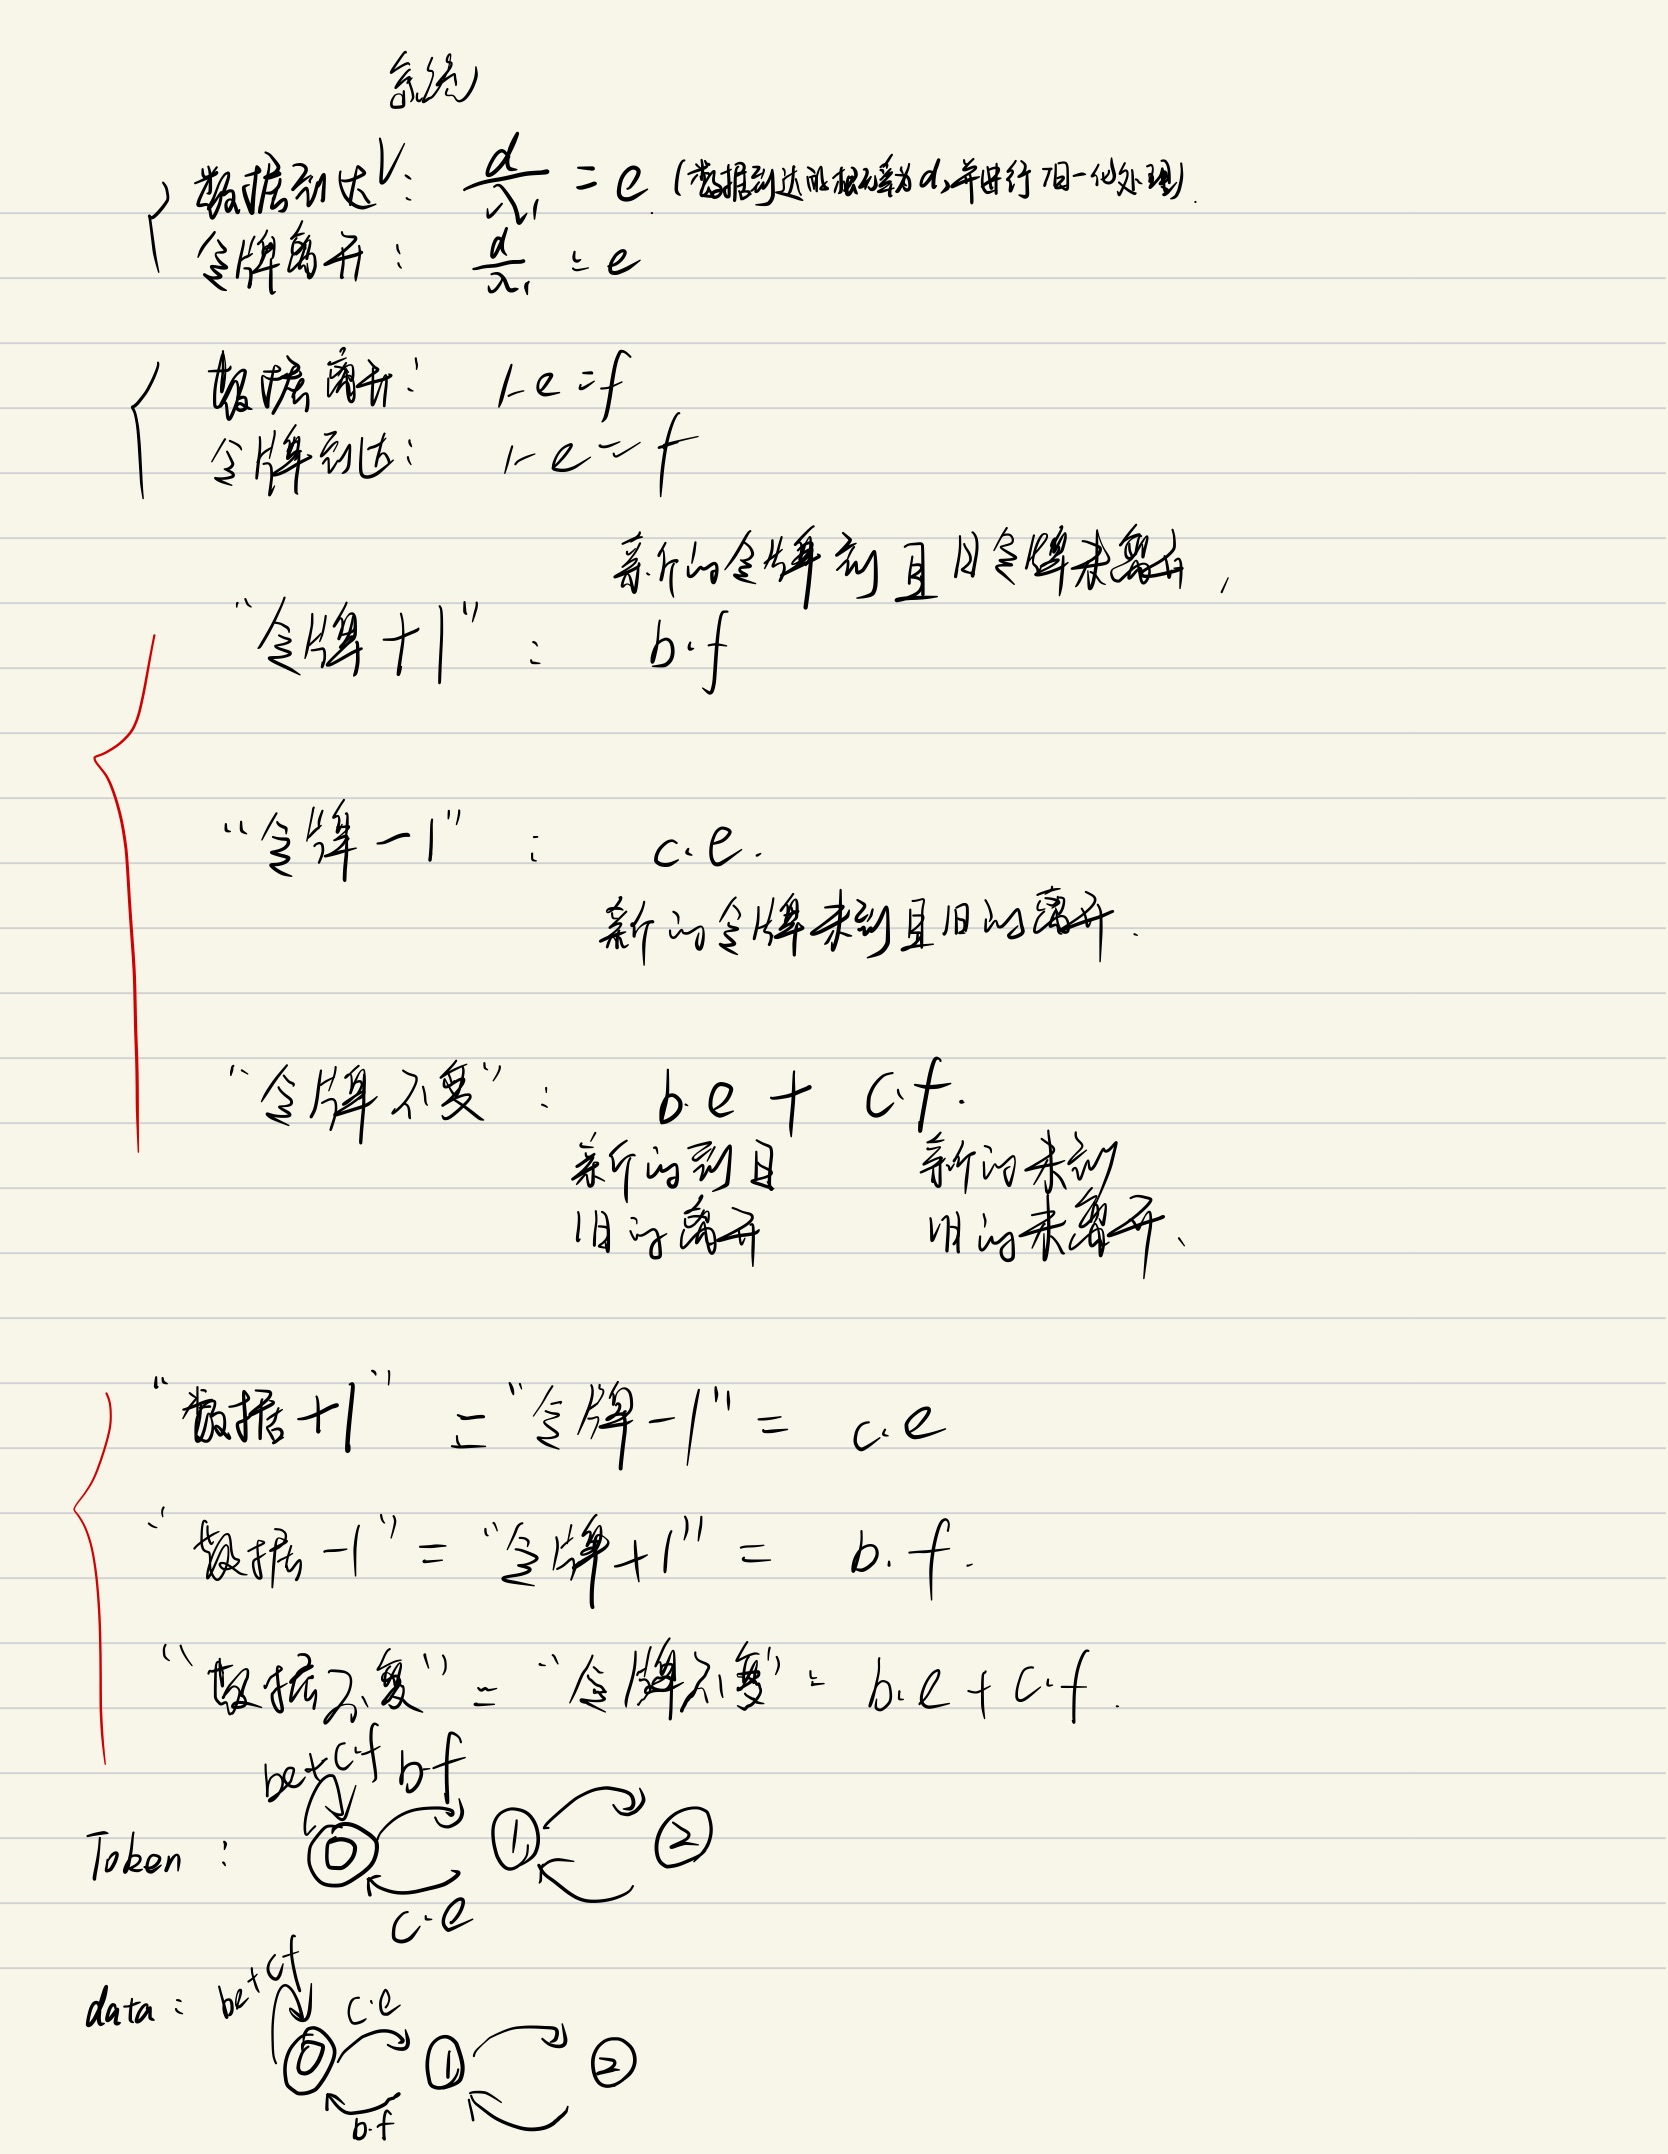 系统
数据到达V: d/λ₁ = e (数据到达的概率为d,并进行归一化处理).
令牌离开: d/λ₁ = e
数据离开: 1-e=f
令牌到达: 1-e=f
新的令牌到且旧令牌未离开,
"令牌+1": b·f
"令牌-1": c·e.
新的令牌未到且旧的离开.
"令牌不变": b·e + c·f.
新的到且 新的未到
旧的离开 旧的未离开、
"数据+1" = "令牌-1" = c·e
"数据-1" = "令牌+1" = b·f.
"数据不变" = "令牌不变" = b·e + c·f.
be+c·f b·f
Token: 0 1 2
c·e
be+cf c·e
data: 0 1 2
b·f